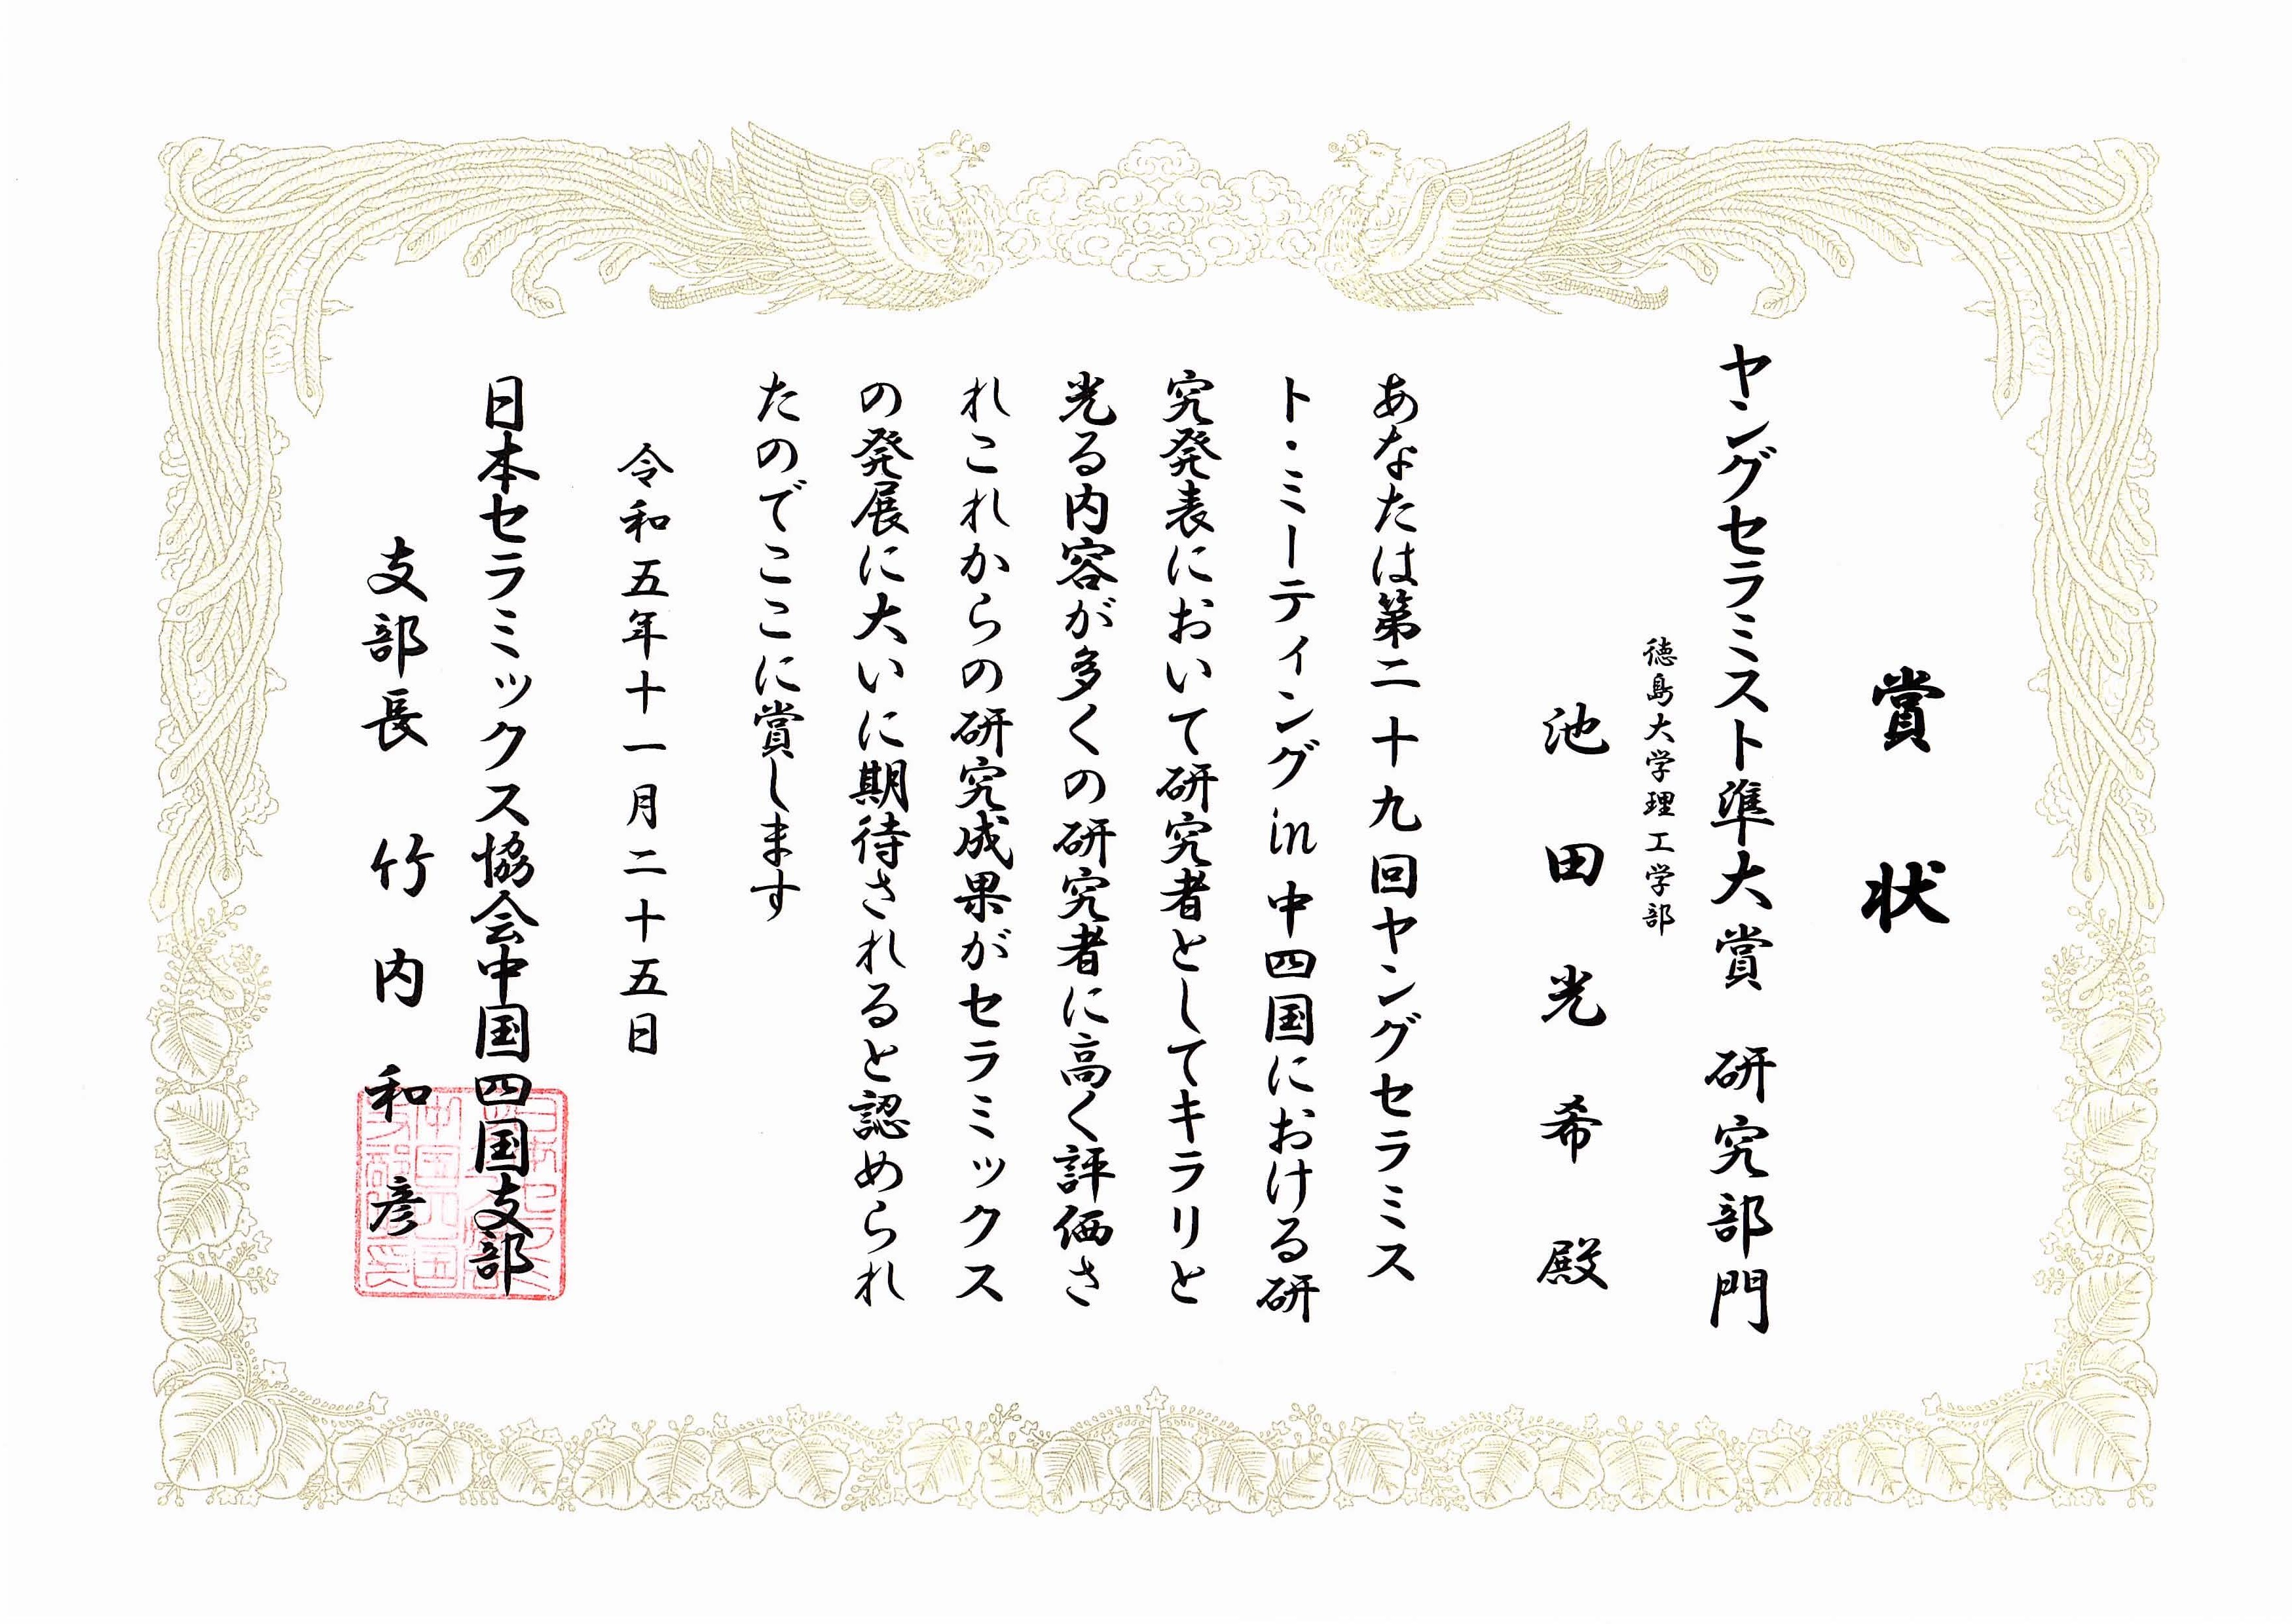 賞状
ヤングセラミスト準大賞 研究部門
徳島大学理工学部
池田光希殿
あなたは第二十九回ヤングセラミス
ト・ミーティングin中四国における研
究発表において研究者としてキラリと
光る内容が多くの研究者に高く評価さ
れこれからの研究成果がセラミックス
の発展に大いに期待されると認められ
たのでここに賞します
令和五年十一月二十五日
日本セラミックス協会中国四国支部
支部長 竹内和彦